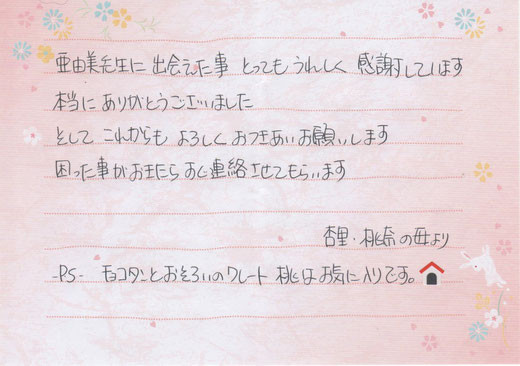 亜由美先生に 出会えた事 とってもうれしく 感謝しています
本当に ありがとうございました
そして これからも よろしく おつきあいお願いします
困った事がおきたら おし連絡させてもらいます
杏里・桃奈の母より
-PS- チョコタンとおそろいのクレート 桃はお気に入りです。